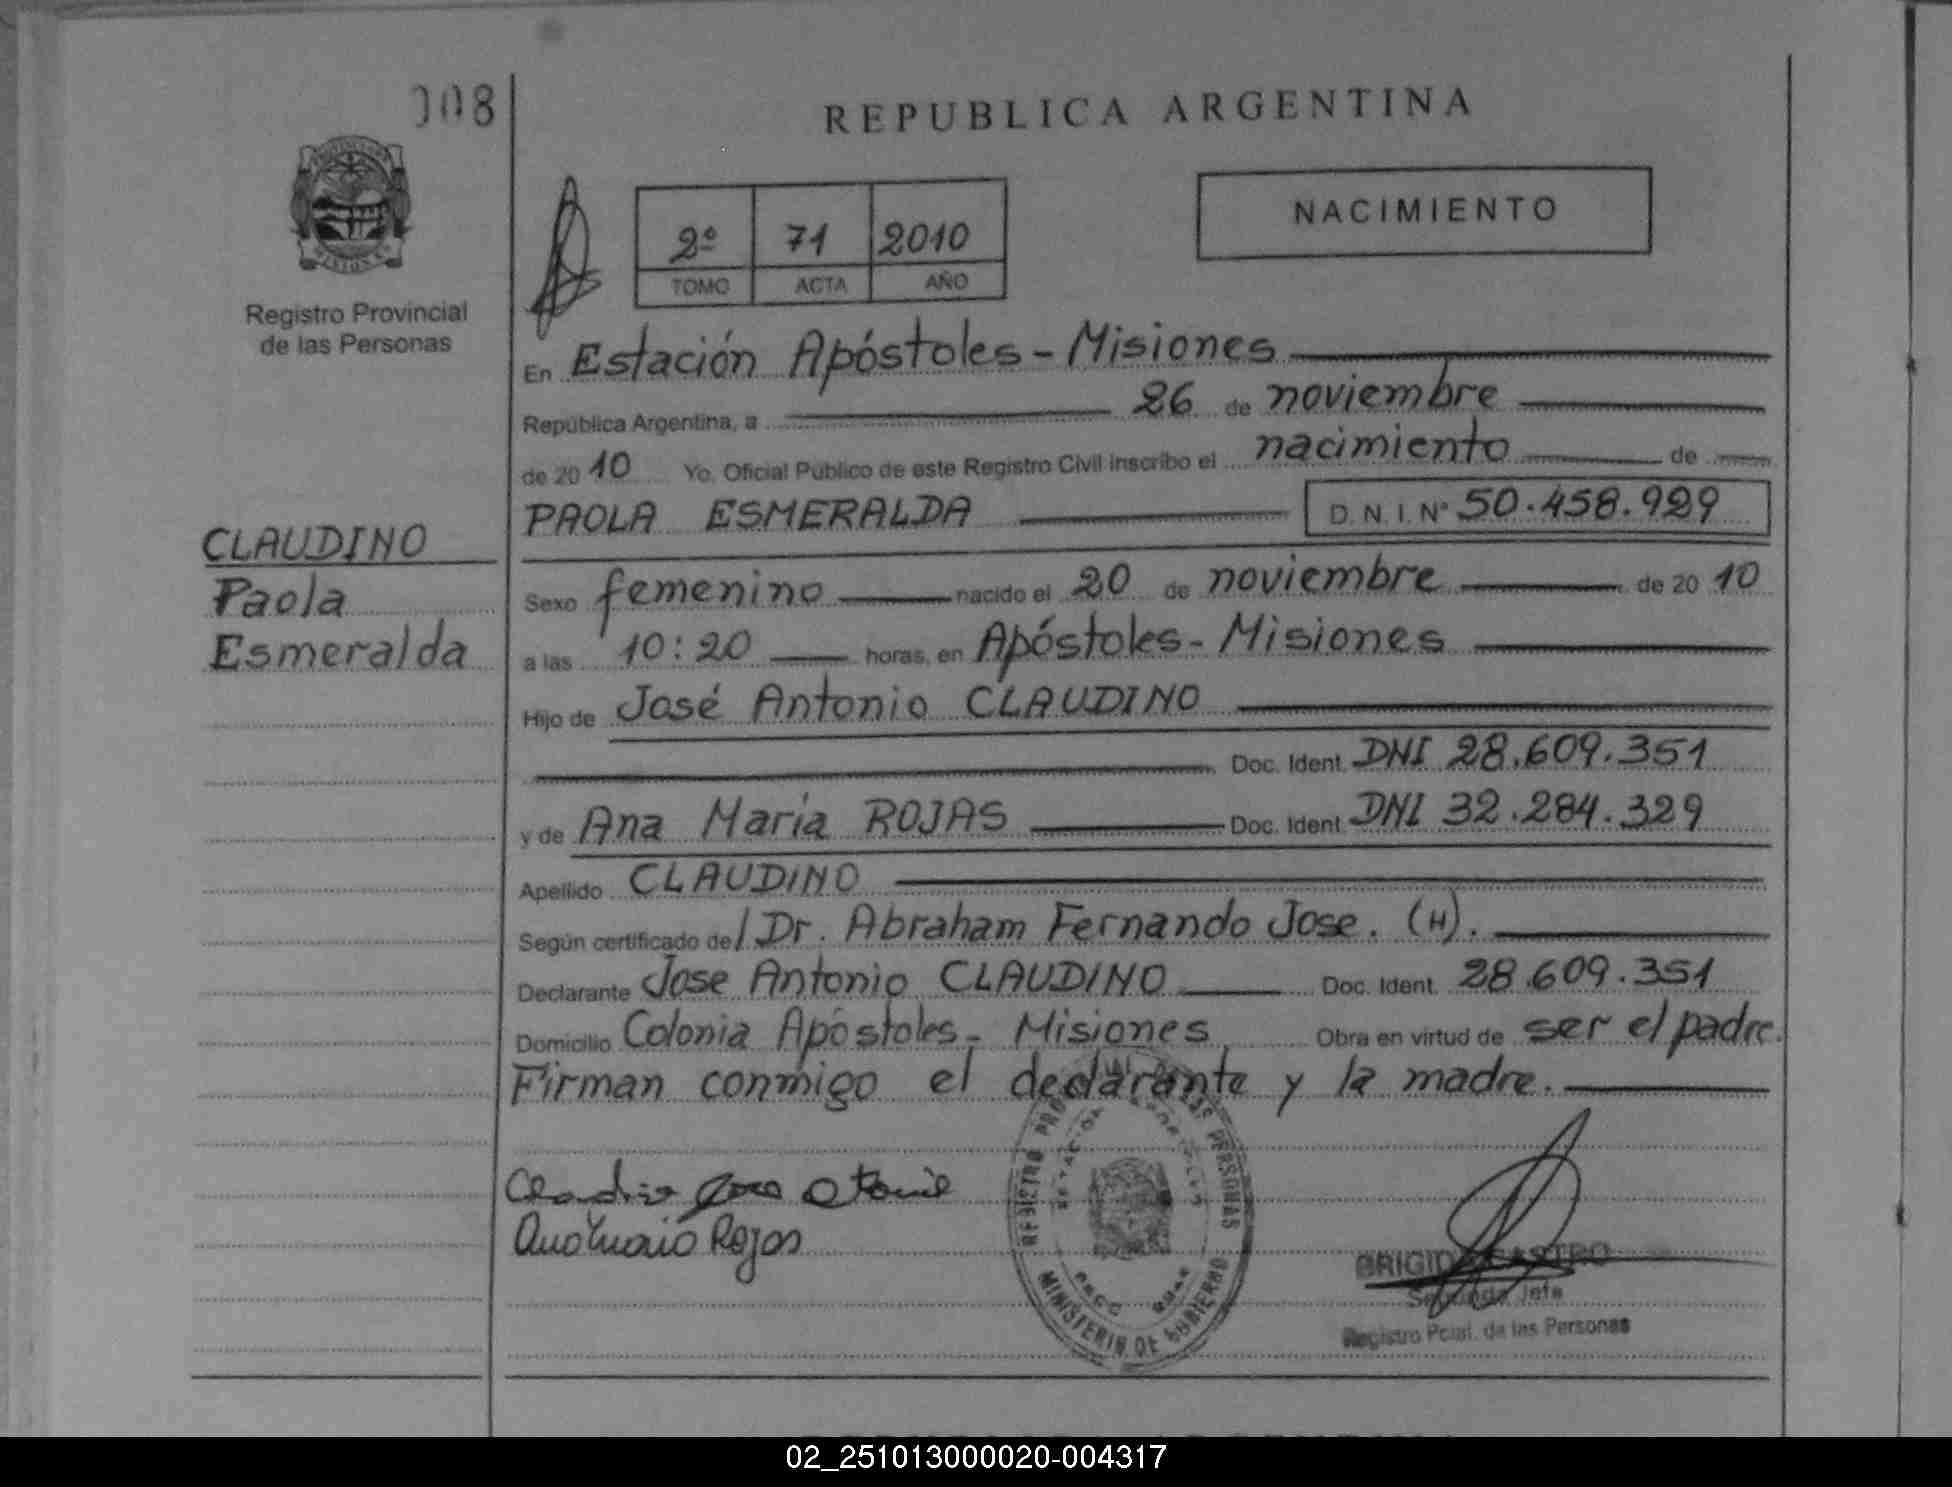 008
REPUBLICA ARGENTINA
NACIMIENTO
2º 71 2010
TOMO ACTA AÑO
Registro Provincial
de las Personas
En Estación Apóstoles - Misiones
República Argentina, a 26 de noviembre
de 2010 Yo, Oficial Público de este Registro Civil inscribo el nacimiento de
PAOLA ESMERALDA D.N.I. Nº 50.458.929
CLAUDINO
Paola
Esmeralda
Sexo femenino nacido el 20 de noviembre de 2010
a las 10:20 horas, en Apóstoles - Misiones
Hijo de José Antonio CLAUDINO
Doc. Ident. DNI 28.609.351
y de Ana María ROJAS Doc. Ident. DNI 32.284.329
Apellido CLAUDINO
Según certificado de/ Dr. Abraham Fernando Jose. (H).
Declarante Jose Antonio CLAUDINO Doc. Ident. 28.609.351
Domicilio Colonia Apóstoles - Misiones Obra en virtud de ser el padre.
Firman conmigo el declarante y la madre.
Ana Maria Rojas
REGISTRO PERSONAS
MINISTERIO DE GOBIERNO
BRIGIDA CASTRO
Segunda Jefe
Registro Pcial. de las Personas
02_251013000020-004317